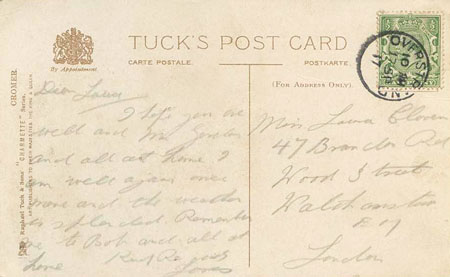 TUCK'S POST CARD
CARTE POSTALE. POSTKARTE.
By Appointment.
(FOR ADDRESS ONLY).
CROMER.
Raphael Tuck & Sons' "CHARMETTE" Series.
OVERST
Dear
I hope you are
well and
and all at home I
am well again once
more and the weather
is splendid. Remember
me to Bob and all at
home Kind Regards
Miss Laura
47 Brandon Rd
Wood Street
Walthamstow
London